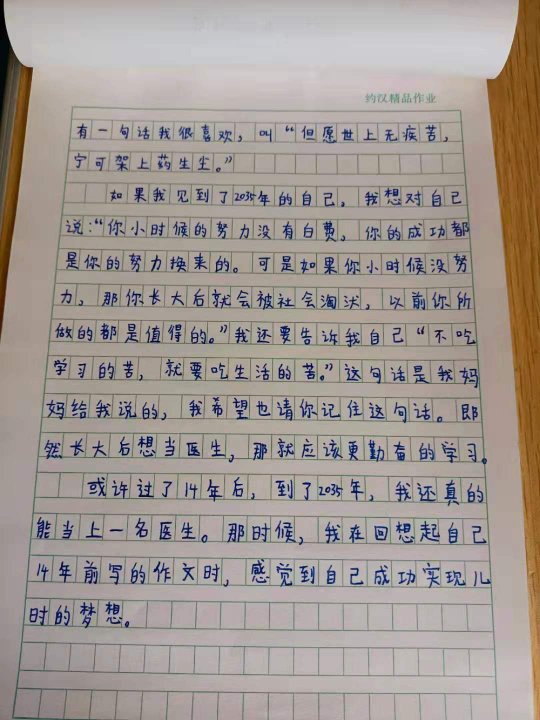 约汉精品作业
有一句话我很喜欢，叫“但愿世上无疾苦，
宁可架上药生尘。”
如果我见到了2035年的自己，我想对自己
说：“你小时候的努力没有白费，你的成功都
是你的努力换来的。可是如果你小时候没努
力，那你长大后就会被社会淘汰，以前你所
做的都是值得的。”我还要告诉我自己“不吃
学习的苦，就要吃生活的苦。”这句话是我妈
妈给我说的，我希望也请你记住这句话。即
然长大后想当医生，那就应该更勤奋的学习。
或许过了14年后，到了2035年，我还真的
能当上一名医生。那时候，我在回想起自己
14年前写的作文时，感觉到自己成功实现儿
时的梦想。